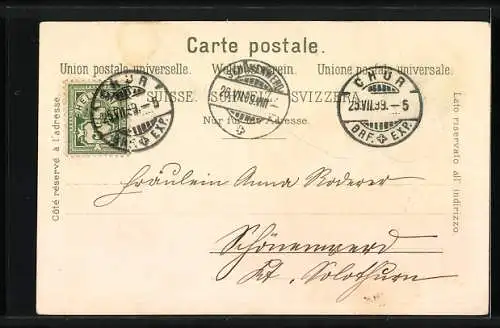 Carte postale.
Union postale universelle. Weltpostverein. Unione postale universale.
SUISSE. SCHWEIZ. SVIZZERA.
Nur für die Adresse.
Côté réservé à l'adresse.
Lato riservato all' indirizzo.
CHUR
25.VII.99.
BRF. EXP.
SCHÖNENWERD
26.VII.99.
CHUR
25.VII.99.-5
BRF. EXP.
Fräulein Anna Roderer
Schönenwerd
Kt. Solothurn